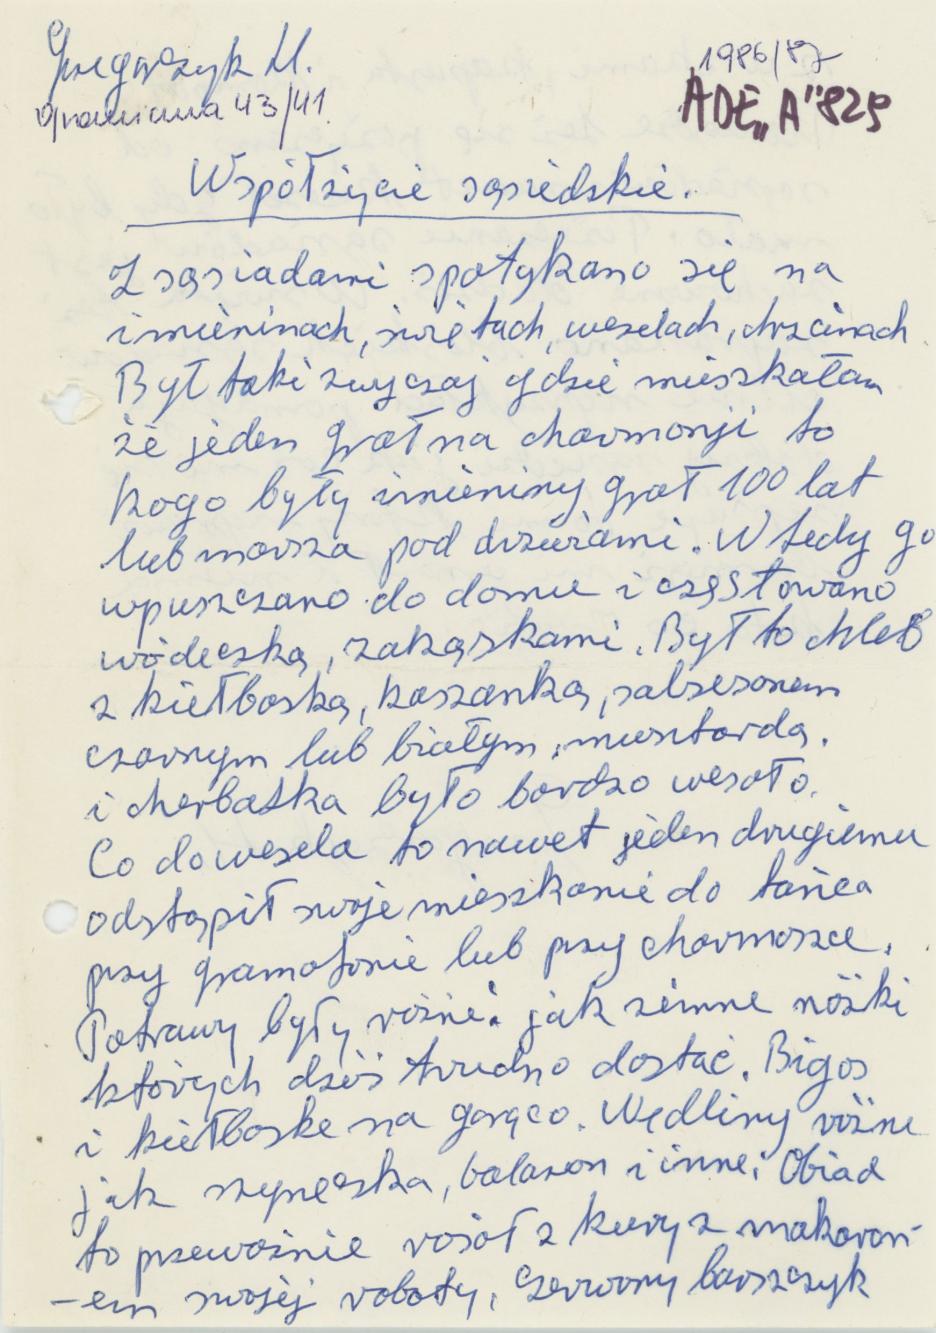 Grzegorczyk M.
1986/87
Uprawniana 43/41.
ADE „A" 829
Współżycie sąsiedskie.
Z sąsiadami spotykano się na
imieninach, świętach, weselach, chrzcinach
Był taki zwyczaj gdzie mieszkałam
że jeden grał na charmonji to
kogo były imieniny grał 100 lat
lub marsza pod drzwiami. Wtedy go
wpuszczano do domu i częstowano
wódeczką, zakąskami. Był to chleb
z kiełbaską, kaszanką, salcesonem
czarnym lub białym, musztardą.
i cherbatka było bardzo wesoło.
Co do wesela to nawet jeden drugiemu
odstąpił swoje mieszkanie do tańca
przy gramofonie lub przy charmoszce.
Potrawy były różne: jak zimne nóżki
których dziś trudno dostać. Bigos
i kiełbaske na gorąco. Wędliny różne
jak szyneczka, balason i inne. Obiad
to przeważnie rosół z kury z makaron-
-em swojej roboty, czerwony barszczyk